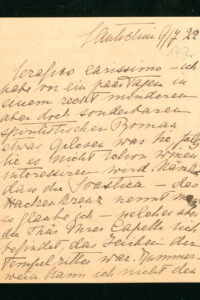 Serafico carissimo – ich
habe vor ein paar Tagen in
einem recht minderen
aber doch sonderbaren
spiritistischen Roman
etwas gelesen was Sie
Sie es nicht schon wissen
interessieren wird.
dass die Svastica – das
Hackenkreuz nennt man
es glaube ich – welches
die Thür Ihres Capelle
befindet, das Zeichen der
Tempelritter war.
kann ich nicht den